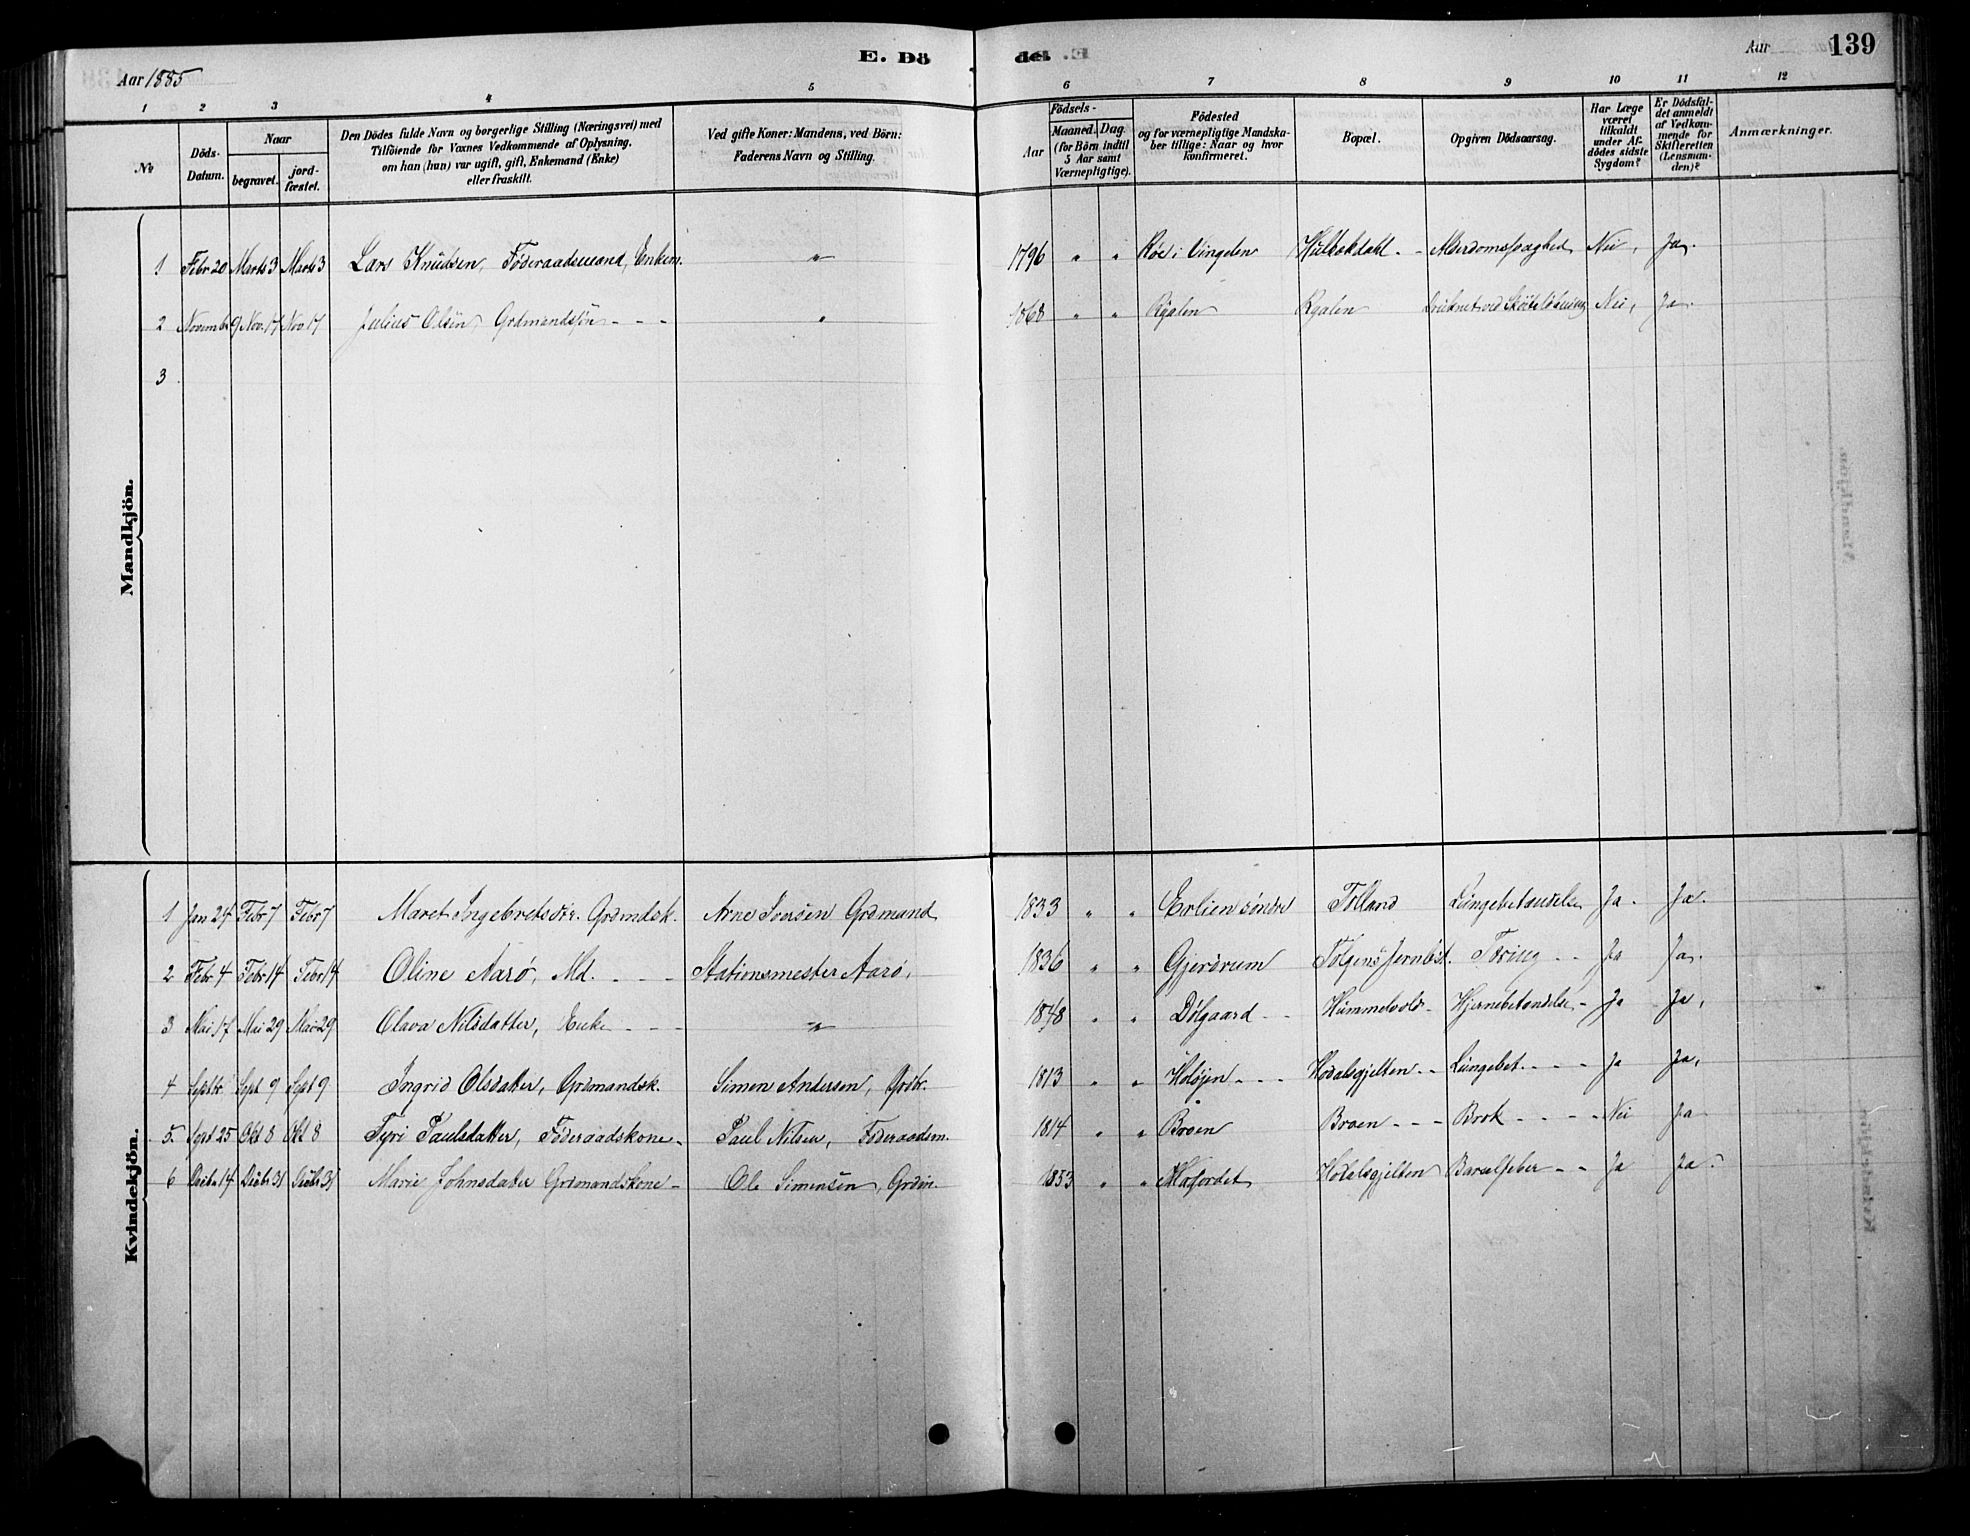 E. Dö del. 139
Aar 1885 Aar
1 2 3 4 5 6 7 8 9 10 11 12
No
Döds-Datum.
Naar
begravet.
jord-fæstet.
Den Dödes fulde Navn og borgerlige Stilling (Næringsvei) med
Tilföiende for Voxnes Vedkommende af Oplysning,
om han (hun) var ugift, gift, Enkemand (Enke)
eller fraskilt.
Ved gifte Koner: Mandens, ved Börn:
Faderens Navn og Stilling.
Födsels-
Aar
Maaned. Dag.
(for Börn indtil
5 Aar samt
Værnepligtige).
Födested
og for værnepligtige Mandska-
ber tillige: Naar og hvor
konfirmeret.
Bopæl.
Opgiven Dödsaarsag.
Har Læge
været
tilkaldt
under Af-
dödes sidste
Sygdom?
Er Dödsfal-
det anmeldt
af Vedkom-
mende for
Skifteretten
(Lensman-
den)?
Anmærkninger.
Mandkjön.
1 Febr 20 Marts 3 Marts 3 Lars Knudsen, Föderaadsmand, Enkem. " 1796 " " Röe i Vingelen - Alderdomssvaghed Nei, Ja.
2 Novemb 9 Nov. 17 Nov. 17 Julius Olsen, Grdmandssön - - - " 1868 " " Rgalen Rgalen Nei, Ja.
3
Kvindekjön.
1 Jan 24 Febr 7 Febr 7 Maret Ingebretsdtr. Grdmdsk. Arne Iversen Grdmand 1833 " " Erlien söndre Tolland Lungebetændelse Ja - Ja.
2 Febr 4 Febr 14 Febr 14 Oline Aarö, Md. - - - Stationsmester Aarö, 1836 " " Gjerdrum Tolgens Jernbst. Tæring - - Ja Ja.
3 Mai 17 Mai 29 Mai 29 Olava Nilsdatter, Enke - - - " 1848 " " Dölgaard - - Hummelvold - Hjernebetændelse - Ja - Ja,
4 Septbr Sept 9 Sept 9 Ingrid Olsdatter, Grdmandsk. Simen Andersen, Grdbr. 1813 " " Holöjen - - - Hodalsgjelten - - Lungebet. - - - Ja Ja,
5. Sept 25 Okt 8 Okt 8 Tyri Paulsdatter, Föderaadskone - Paul Nilsen, Föderaadsm. 1814 " " Broen Broen - - - Brok - - - - Nei Ja
6 14 31 31 Marie Johnsdatter Grdmandskone - Ole Simensen, Grdm. 1853 " " Hodalsgjelten Barselfeber - - Ja Ja.